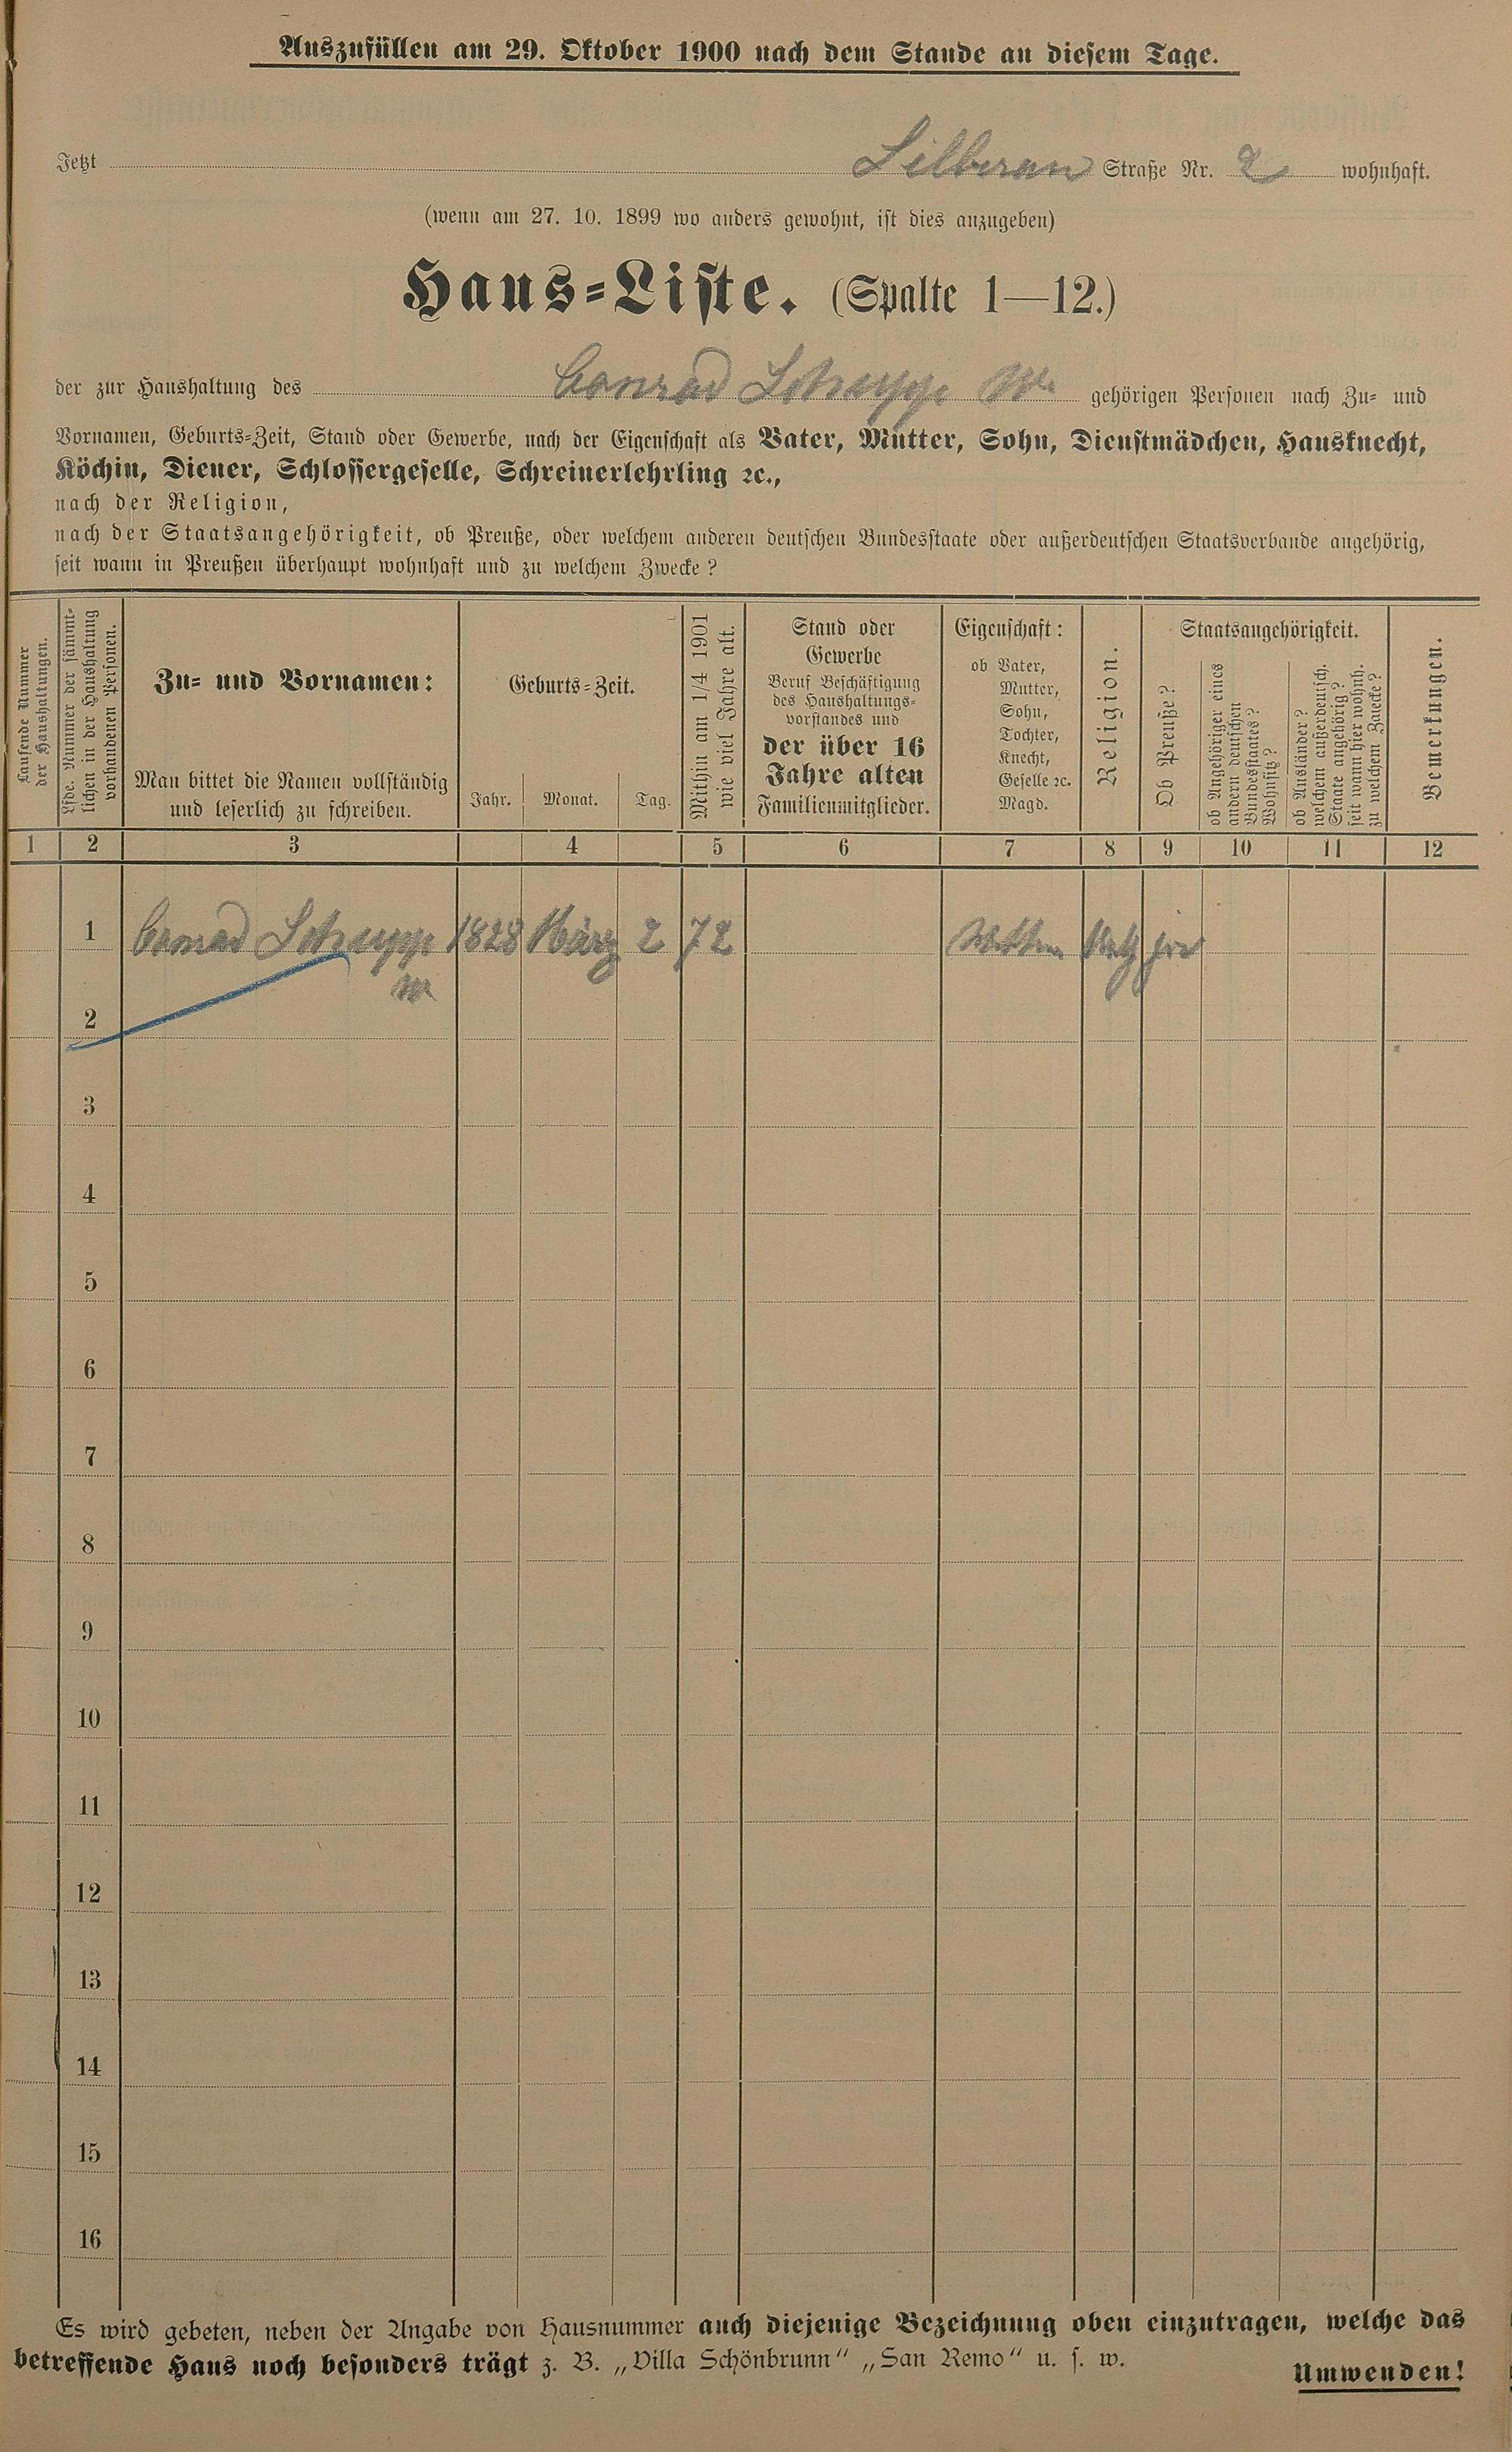 Auszufüllen am 29. Oktober 1900 nach dem Stande an diesem Tage.
Jetzt Silberau Straße Nr. 2 wohnhaft.
(wenn am 27. 10. 1899 wo anders gewohnt, ist dies anzugeben)
Haus-Liste. (Spalte 1—12.)
der zur Haushaltung des Conrad Schrupp We gehörigen Personen nach Zu- und
Vornamen, Geburts-Zeit, Stand oder Gewerbe, nach der Eigenschaft als Vater, Mutter, Sohn, Dienstmädchen, Hausknecht,
Köchin, Diener, Schlossergeselle, Schreinerlehrling ꝛc.,
nach der Religion,
nach der Staatsangehörigkeit, ob Preuße, oder welchem anderen deutschen Bundesstaate oder außerdeutschen Staatsverbande angehörig,
seit wann in Preußen überhaupt wohnhaft und zu welchem Zwecke?
Laufende Nummer
der Haushaltungen.
Lfde. Nummer der sämmt-
lichen in der Haushaltung
vorhandenen Personen.
Zu- und Vornamen:
Man bittet die Namen vollständig
und leserlich zu schreiben.
Geburts-Zeit.
Jahr. Monat. Tag.
Mithin am 1/4 1901
wie viel Jahre alt.
Stand oder
Gewerbe
Beruf Beschäftigung
des Haushaltungs-
vorstandes und
der über 16
Jahre alten
Familienmitglieder.
Eigenschaft:
ob Vater,
Mutter,
Sohn,
Tochter,
Knecht,
Geselle ꝛc.
Magd.
Religion.
Staatsangehörigkeit.
Ob Preuße?
ob Angehöriger eines
andern deutschen
Bundesstaates?
Wohnsitz?
ob Ausländer?
welchem außerdeutsch.
Staate angehörig?
seit wann hier wohnh.
zu welchem Zwecke?
Bemerkungen.
1 2 3 4 5 6 7 8 9 10 11 12
1 Conrad Schrupp 1828 März 2 72
We
2
3
4
5
6
7
8
9
10
11
12
13
14
15
16
Es wird gebeten, neben der Angabe von Hausnummer auch diejenige Bezeichnung oben einzutragen, welche das
betreffende Haus noch besonders trägt z. B. „Villa Schönbrunn" „San Remo" u. s. w.
Umwenden!